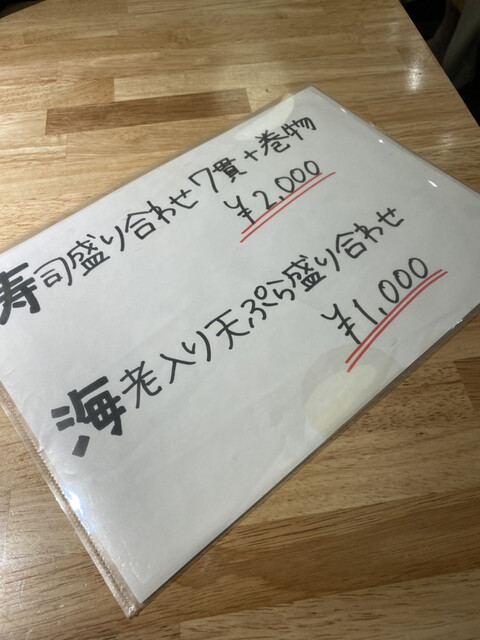 寿司盛り合わせ7貫+巻物
¥2,000
海老入り天ぷら盛り合わせ
¥1,000